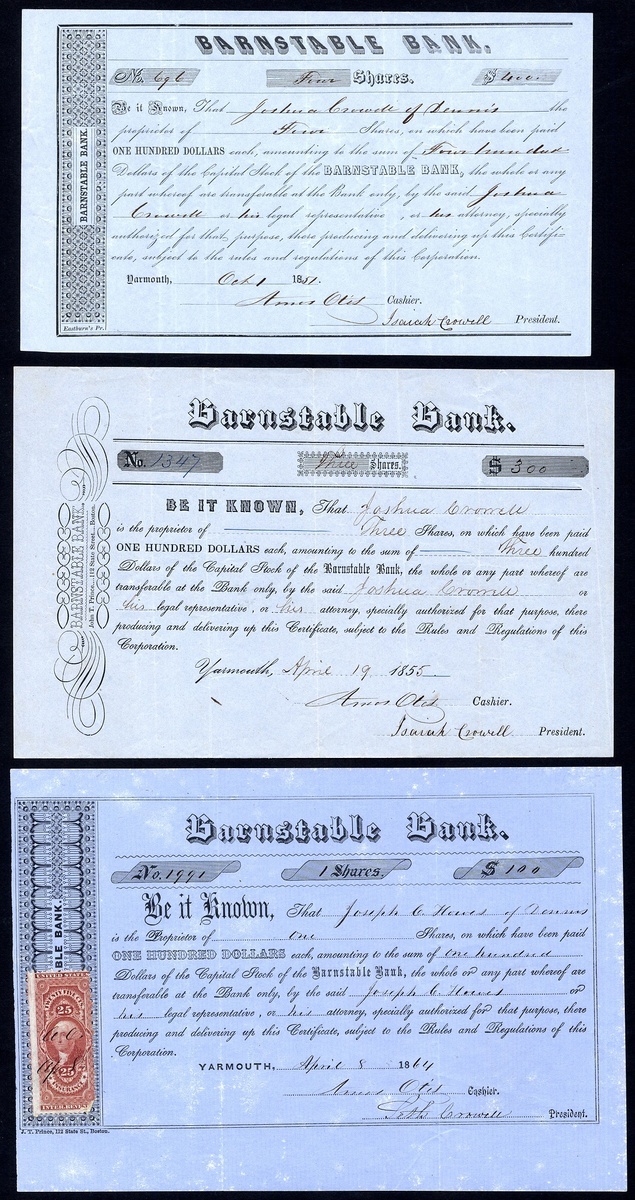 BARNSTABLE BANK.
No. 696 Four Shares. $400.
Be it Known, That Joshua Crowell of Dennis the
proprietor of Four Shares, on which have been paid
ONE HUNDRED DOLLARS each, amounting to the sum of Four hundred
Dollars of the Capital Stock of the BARNSTABLE BANK, the whole or any
part whereof are transferable at the Bank only, by the said Joshua
Crowell or his legal representative, or his attorney, specially
authorized for that purpose, there producing and delivering up this Certifi-
cate, subject to the rules and regulations of this Corporation.
Yarmouth, Oct 1 1851.
Amos Otis Cashier.
Isaiah Crowell President.
BARNSTABLE BANK
Eastburn's Pr.
Barnstable Bank.
No. 1347 Three Shares. $ 300
BE IT KNOWN, That Joshua Crowell
is the proprietor of Three Shares, on which have been paid
ONE HUNDRED DOLLARS each, amounting to the sum of Three hundred
Dollars of the Capital Stock of the Barnstable Bank, the whole or any part whereof are
transferable at the Bank only, by the said Joshua Crowell or
his legal representative, or his attorney, specially authorized for that purpose, there
producing and delivering up this Certificate, subject to the Rules and Regulations of this
Corporation.
Yarmouth, April 19 1855
Amos Otis Cashier.
Isaiah Crowell President.
BARNSTABLE BANK.
John T. Prince, 112 State Street, Boston.
Barnstable Bank.
No. 1991 1 Shares. $ 100
Be it Known, That Joseph C. Howes of Dennis
is the Proprietor of one Shares, on which have been paid
ONE HUNDRED DOLLARS each, amounting to the sum of one hundred
Dollars of the Capital Stock of the Barnstable Bank, the whole or any part whereof are
transferable at the Bank only, by the said Joseph C. Howes or
his legal representative, or his attorney, specially authorized for that purpose, there
producing and delivering up this Certificate, subject to the Rules and Regulations of this
Corporation.
YARMOUTH, April 8 1864
Amos Otis Cashier.
Seth Crowell President.
BLE BANK.
UNITED STATES
25 25
25 25
INSURANCE
INTER. REVENUE
J. T. Prince, 112 State St., Boston.